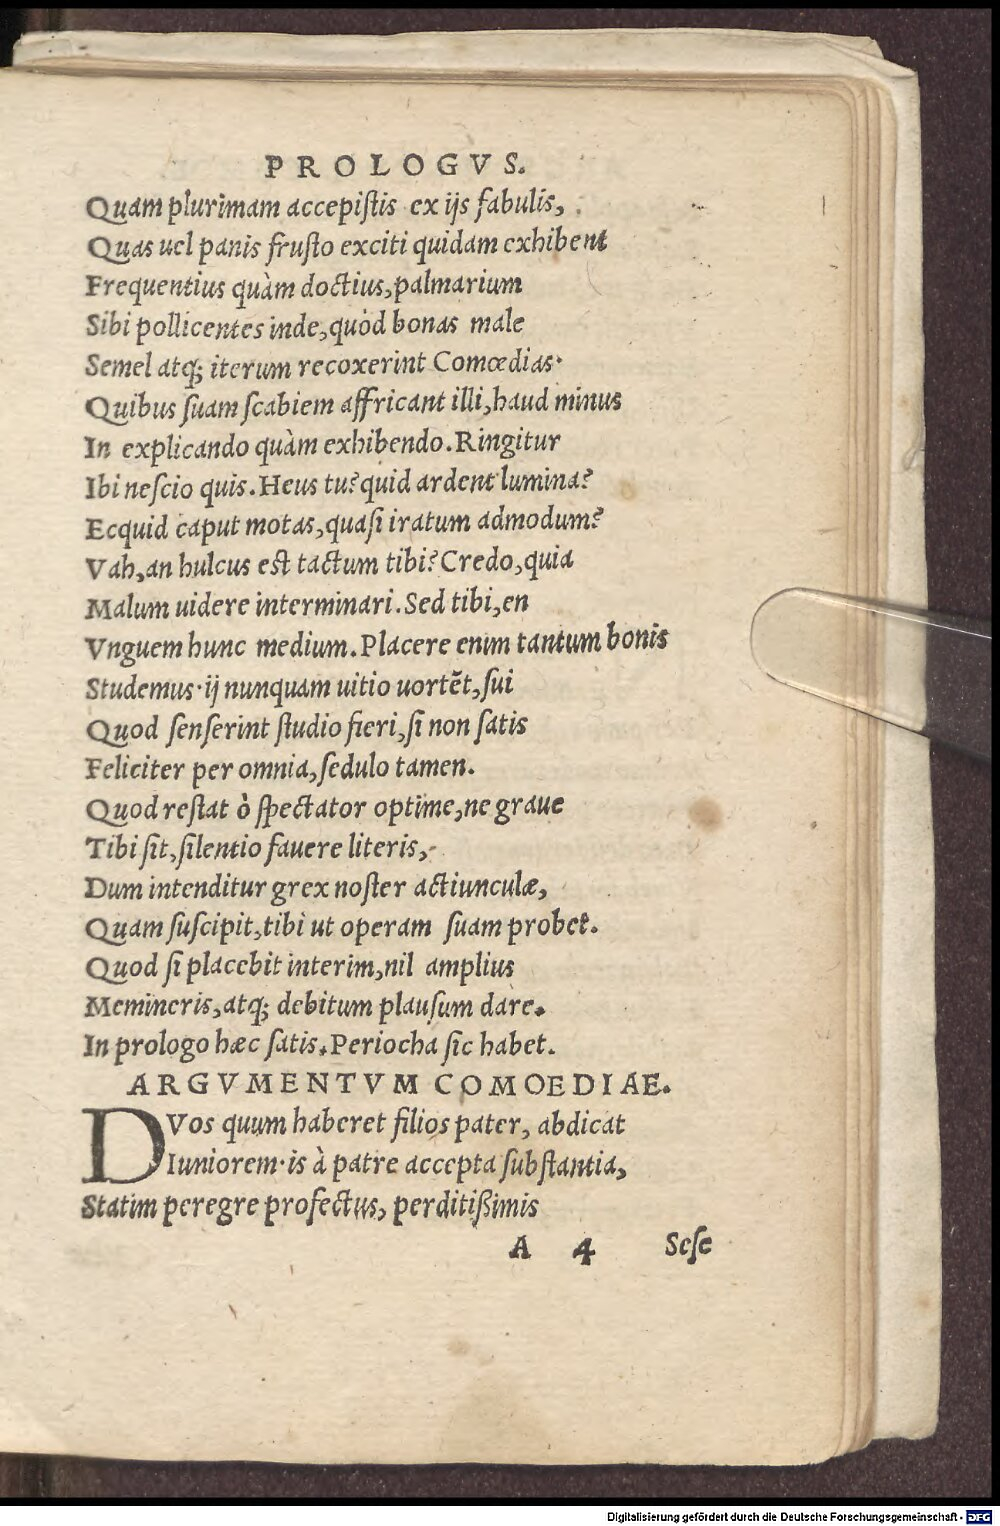 PROLOGVS.
Quam plurimam accepiſtis ex ijs fabulis,
Quas uel panis fruſto exciti quidam exhibent
Frequentius quàm doctius, palmarium
Sibi pollicentes inde, quòd bonas male
Semel atq; iterum recoxerint Comœdias·
Quibus ſuam ſcabiem affricant illi, haud minus
In explicando quàm exhibendo. Ringitur
Ibi neſcio quis. Heus tu? quid ardent lumina?
Ecquid caput motas, quaſi iratum admodum?
Vah, an hulcus est tactum tibi? Credo, quia
Malum uidere interminari. Sed tibi, en
Vnguem hunc medium. Placere enim tantum bonis
Studemus· ij nunquam uitio uortẽt, ſui
Quod ſenſerint ſtudio fieri, ſi non ſatis
Feliciter per omnia, ſedulo tamen.
Quod reſtat ò ſpectator optime, ne graue
Tibi ſit, ſilentio fauere literis,
Dum intenditur grex noſter actiunculæ,
Quam ſuſcipit, tibi ut operam ſuam probet.
Quod ſi placebit interim, nil amplius
Memineris, atq; debitum plauſum dare.
In prologo hæc ſatis. Periocha ſic habet.
ARGVMENTVM COMOEDIAE.
DVos quum haberet filios pater, abdicat
Iuniorem· is à patre accepta ſubſtantia,
Statim peregre profectus, perditißimis
A 4 Seſe
Digitalisierung gefördert durch die Deutsche Forschungsgemeinschaft - DFG